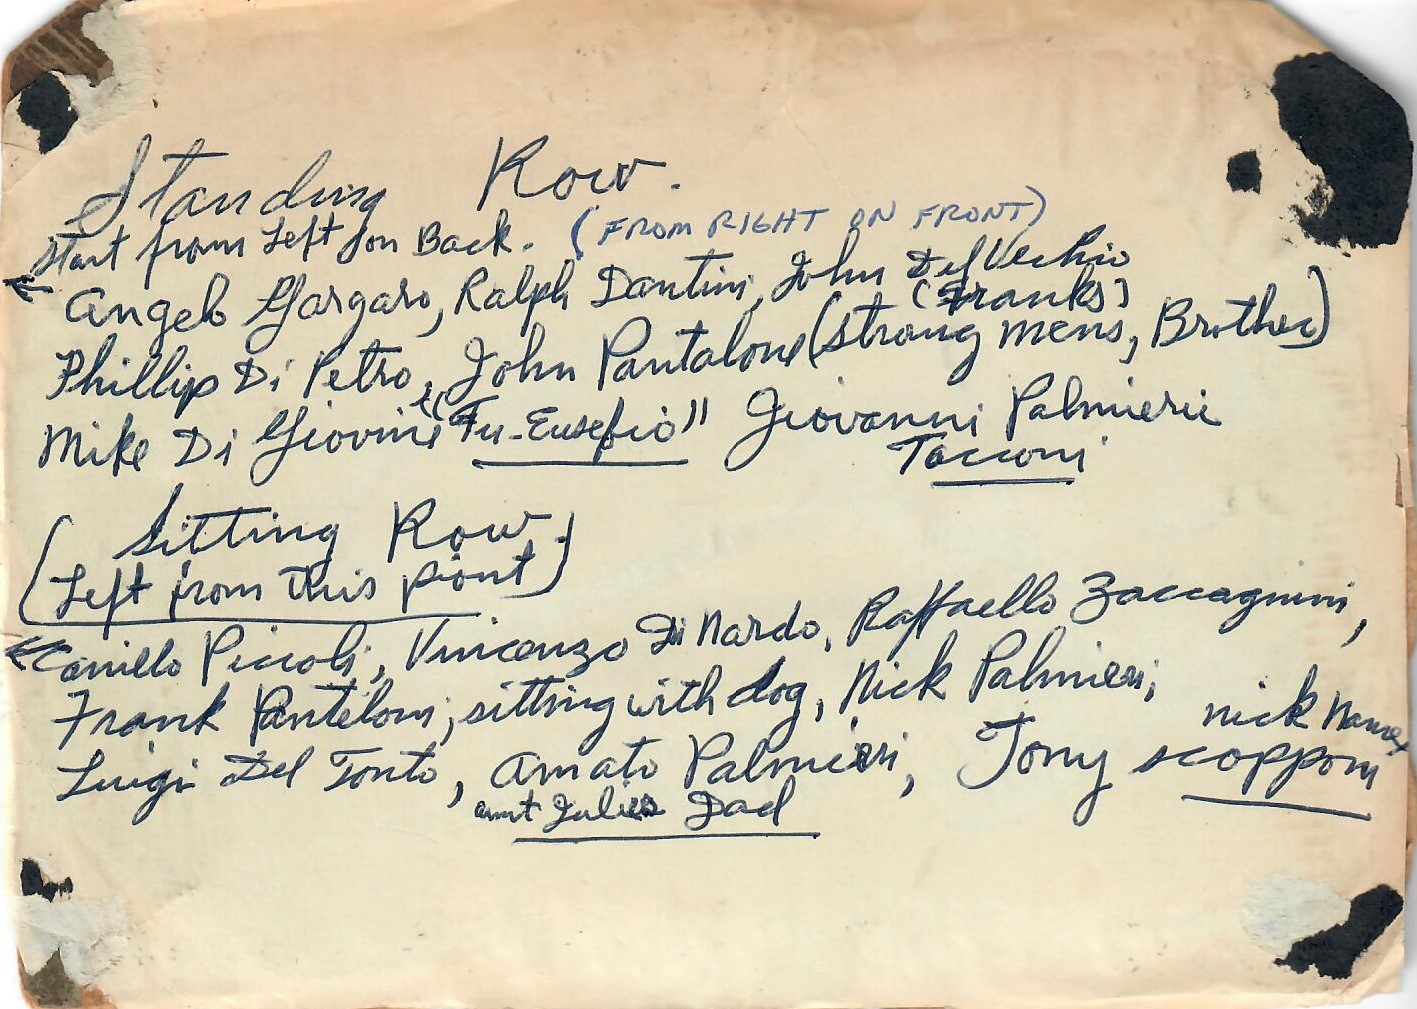 Standing Row.
start from Left on Back. (FROM RIGHT ON FRONT)
Angelo Gargaro, Ralph Dantini, John Del Vechio
(Franks)
Phillip Di Petro, John Pantalone (strong mens, Brother)
Mike Di Giovini "Fu-Eusebio" Giovanni Palmierie
Tacconi
Sitting Row.
(Left from this piont)
Camillo Piccoli, Vincenzo Di Nardo, Raffaello Zaccagnini,
Frank Panteloni, sitting with dog, Nick Palmieri,
nick Name
Luigi Del Tonto, Amato Palmieri, Tony scopponi
aunt Julies Dad